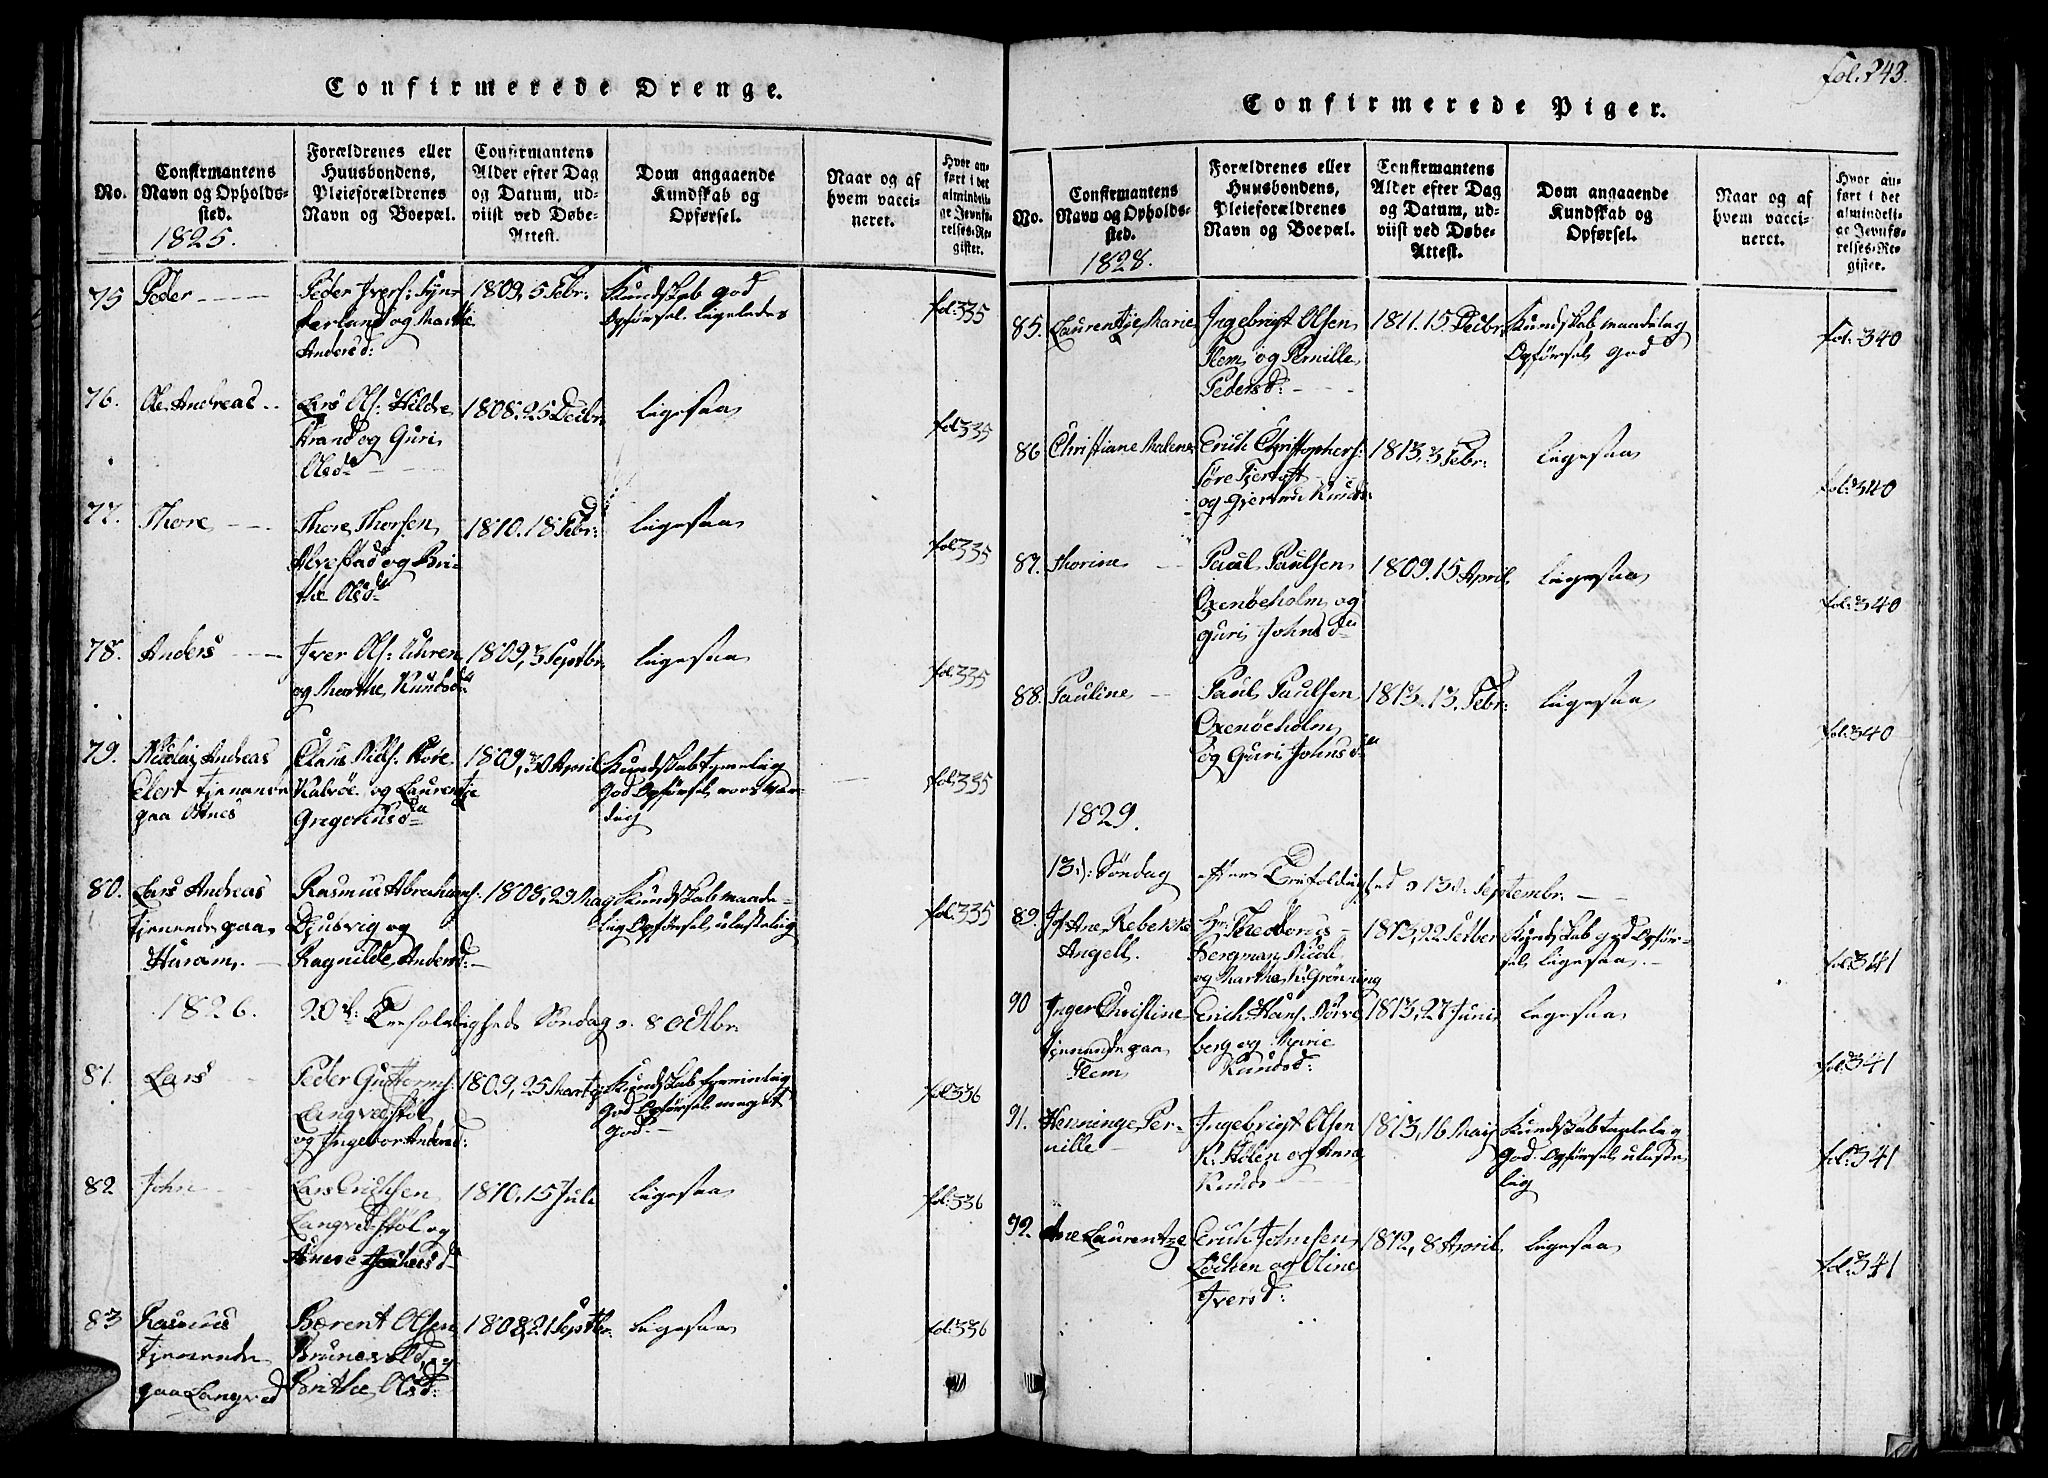 Confirmerede Drenge.
No.
Confirmantens Navn og Opholdssted.
1825.
Forældrenes eller Huusbondens, Pleieforældrenes Navn og Boepæl.
Confirmantens Alder efter Dag og Datum, udviist ved Døbe-Attest.
Dom angaaende Kundskab og Opførsel.
Naar og af hvem vaccineret.
Hvor anført i det almindelige Jevnførelses-Register.
75 Peder Peder Ivers: 1809, 5 Febr: Kundskab god fol: 335
og Marthe Opførsel ligeledes
Andersd:
76. Ole Andreas Lars Ols: Hildre 1808. 25 Decbr. ligesaa fol 335
Strand og Guri
Olsd
77. Thore Thore Thorsen 1810. 18 Febr: ligesaa fol 335
Alvestad og Bri-
the Olsd
78. Anders Iver Ols: Uhren 1809, 3 Septbr. ligesaa fol 335
og Marthe Knudsd
79. Nicolaj Andreas Claus Niels: 1809, 30 April Kundskab temelig fol 335
Elert tjenende Kalvøe og Laurentze god Opførsel
paa Otnes Gregoriusd dig
80. Lars Andreas Rasmus Abraham: 1808, 29 May Kundskab maade- fol 335
tjenende paa Djubvig og lig Opførsel ulastelig
Huram. Ragnilde Andersd:
1826. 20de Trefoldigheds Søndag d. 8 Octbr.
81. Lars Peder Guttorms: 1809, 25 Marty Kundskab temmelig fol 336
Langvedstøl god Opførsel meget
og Ingebor Andersd: god.
82 John Lars Erichsen 1810, 15 Juli ligesaa fol. 336
Langvedstøl og
Anne
83 Rasmus Bærent Olsen 1808, 21 Septbr. ligesaa fol: 336
tjenende Brunevold og
paa Langved Brithe Olsd:
fol. 243.
Confirmerede Piger.
No.
Confirmantens Navn og Opholdssted.
1828.
Forældrenes eller Huusbondens, Pleieforældrenes Navn og Boepæl.
Confirmantens Alder efter Dag og Datum, udviist ved Døbe-Attest.
Dom angaaende Kundskab og Opførsel.
Naar og af hvem vaccineret.
Hvor anført i det almindelige Jevnførelses-Register.
85. Laurentze Marie Ingebrigt Olsen 1811. 15. Decbr. Kundskab maadelig fol: 340
Flem og Pernille Opførsel god
Pedersd:
86 Christiane Malene Erich Christophers: 1813, 3 Febr: ligesaa fol: 340
Søre Fjertoft
og Gjertru Knudsd
87. Thorine Paul Paulsen 1809. 15 April ligesaa fol: 340
Oxenøeholm og
Guri Johnsd
88. Pauline Paul Paulsen 1813. 13. Febr: ligesaa fol 340
Oxenøeholm
og Guri Johnsd
1829.
13de Søndag efter Trefoldighed d 13de Septembr.
89. Ane Rebekka Hr: Theodorus 1813, 22 Kundskab god Opfør- fol: 341
Angell. Bergman sel ligesaa.
og Martha Grønning
90 Inger Christine Erich Hans: 1813, 27 Juni ligesaa fol: 341
tjenende paa berg og Marie
Flem Knudsd:
91. Henninge Per- Ingebrigt Olsen 1813, 16 May Kundskab fol: 341
nille og Anne god. Opførsel ulaste
Knuds lig
92. Ane Laurentze Erich Johnsen 1812, 8 April ligesaa fol: 341
og Oline
Iversd: